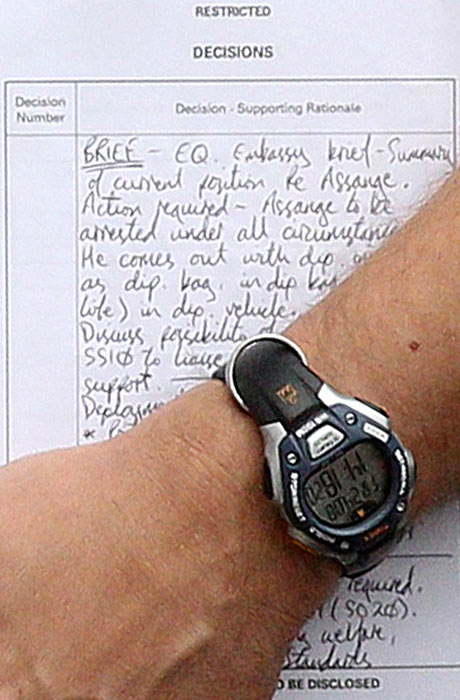 RESTRICTED
DECISIONS
Decision Number
Decision - Supporting Rationale
BRIEF - EQ. Embassy brief - Summary
of current position re Assange.
Action required - Assange to be
arrested under all circumstance
He comes out with dip
as dip. bag, in dip
in dip. vehicle.
Discuss possibility
SS10 to liaise
support.
Deployme
required.
(SO20).
welfare,
Standards
O BE DISCLOSED